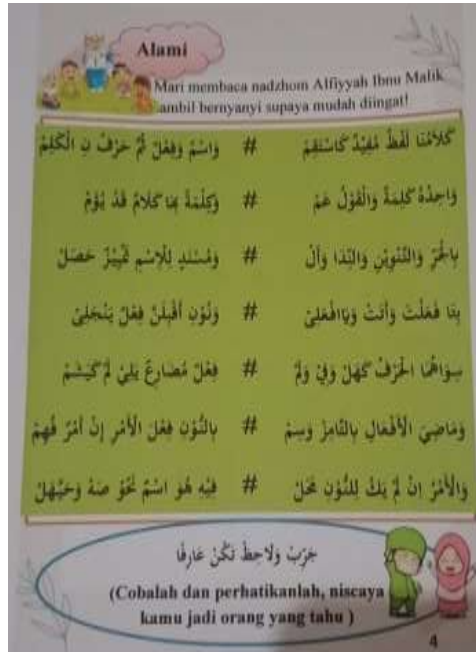 Alami
Mari membaca nadzhom Alfiyyah Ibnu Malik
ambil bernyanyi supaya mudah diingat!
كَلَامُنَا لَفْظٌ مُفِيْدٌ كَاسْتَقِمْ # وَاسْمٌ وَفِعْلٌ ثُمَّ حَرْفٌ نِ الْكَلِمْ
وَاحِدُهُ كَلِمَةٌ وَالْقَوْلُ عَمْ # وَكِلْمَةٌ بِهَا كَلَامٌ قَدْ يُؤَمْ
بِالْجَرِّ وَالتَّنْوِيْنِ وَالنِّدَا وَأَلْ # وَمُسْنَدٍ لِلْإِسْمِ تَمْيِيْزٌ حَصَلْ
بِتَا فَعَلْتَ وَأَتَتْ وَيَاافْعَلِيْ # وَنُوْنِ أَقْبِلَنَّ فِعْلٌ يَنْجَلِيْ
سِوَاهُمَا الْحَرْفُ كَهَلْ وَفِيْ وَلَمْ # فِعْلٌ مُضَارِعٌ يَلِيْ لَمْ كَيَشَمْ
وَمَاضِيَ الْأَفْعَالِ بِالتَّامِزْ وَسِمْ # بِالنُّوْنِ فِعْلَ الْأَمْرِ إِنْ أَمْرٌ فُهِمْ
وَالْأَمْرُ إِنْ لَمْ يَكُ لِلنُّوْنِ مَحَلْ # فِيْهِ هُوَ اسْمٌ نَحْوُ صَهْ وَحَيَّهَلْ
جَرِّبْ وَلَاحِظْ تَكُنْ عَارِفًا
(Cobalah dan perhatikanlah, niscaya
kamu jadi orang yang tahu )
4